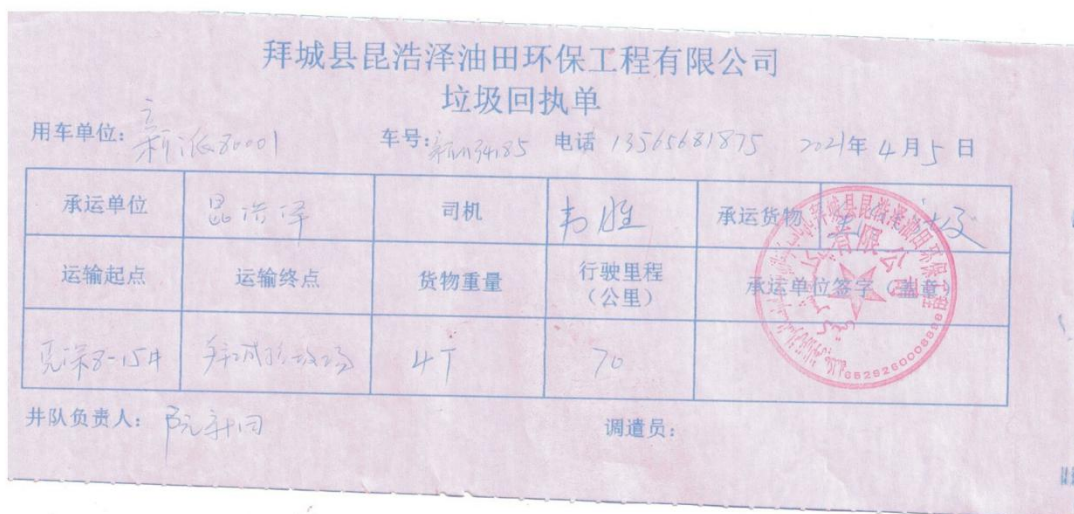 拜城县昆浩泽油田环保工程有限公司
垃圾回执单
用车单位: 新派80001 车号: 新N34185 电话 13565681875 2021年4月5日
承运单位 昆浩泽 司机 韦胜 承运货物 垃圾
运输起点 运输终点 货物重量 行驶里程（公里） 承运单位签字（盖章）
克深8-15井 拜城垃圾场 4T 70
井队负责人: 调遣员: